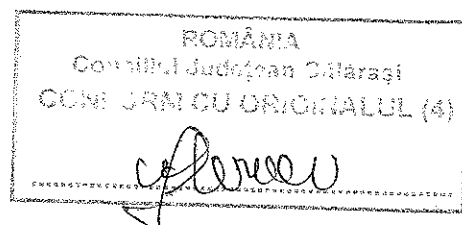 ROMÂNIA
Consiliul Judeţean Călăraşi
CONFORM CU ORIGINALUL (4)